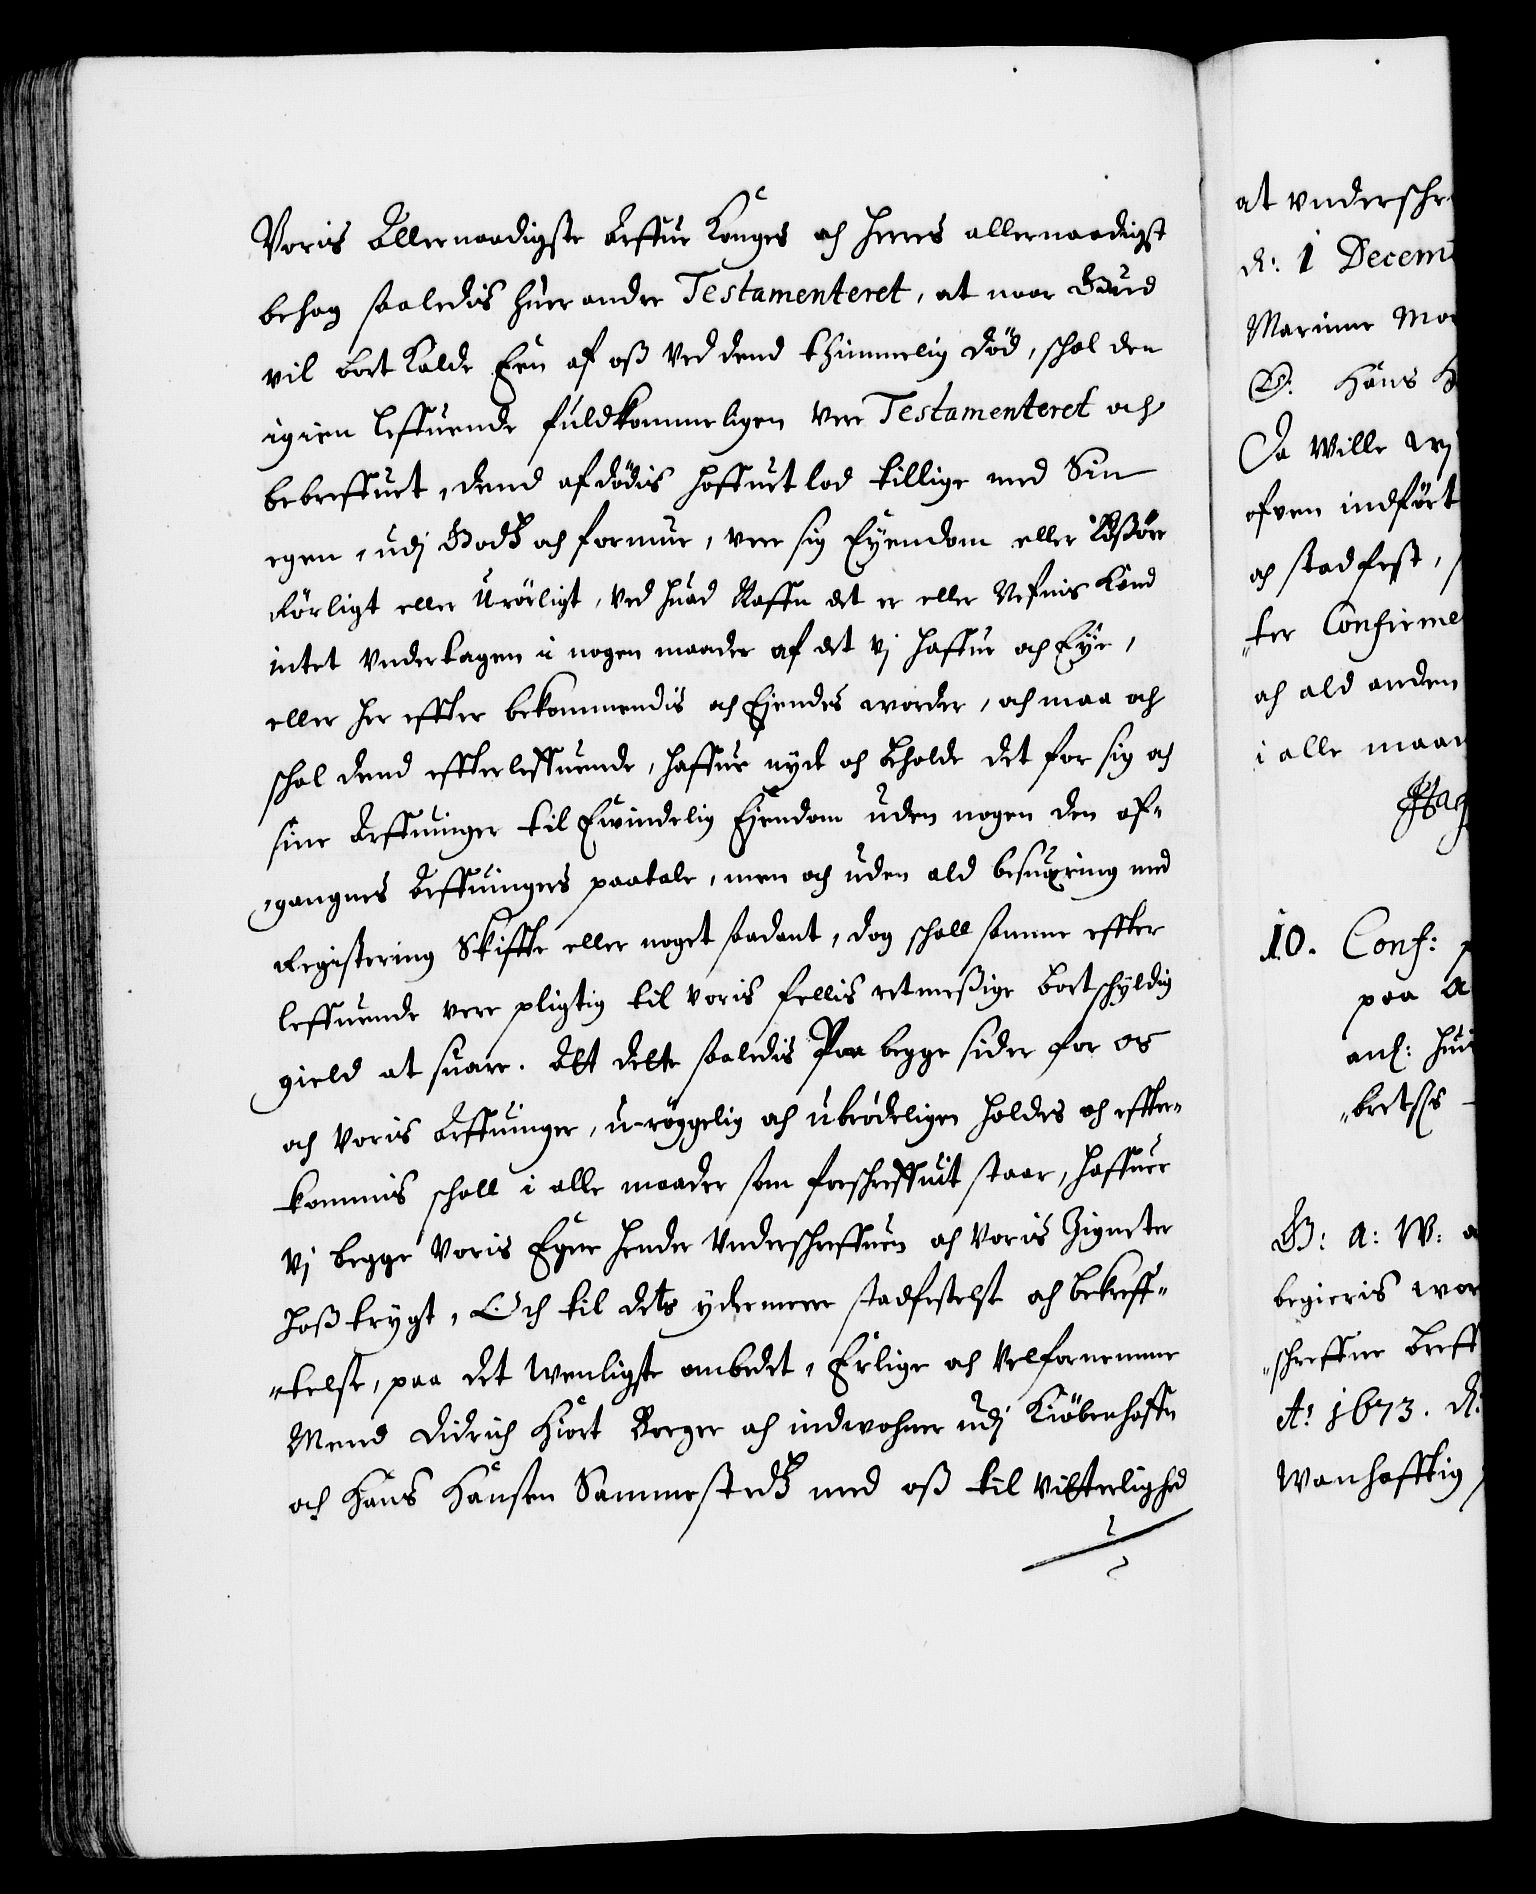 Voris Allernaadigste Arffue Konges och Herres allernaadigst
behag saaledis huer andre Testamenteret, at naar Gud
vil bort Kalde Een af oß ved dend thimmelig död, schal den
igien leffuende fuldkommeligen vere Testamenteret och
bebreffuet, dend afdödis hoffuet lod tillige med Sin
egen, udj Godß och formue, vere sig Eyendom eller Lößöre
Rörligt eller Urörligt, ved huad Naffn det er eller Nefnis Kand
intet undertagen i nogen maader af det vj haffue och Eye,
eller her effter bekommendis och Eyendes worder, och maa och
schal dend effterleffuende, haffue nyde och beholde det for sig och
sine Arffuinger til Ewindelig Eyendom uden nogen den af-
gangnes Arffuingers paatale, men och uden ald besuering med
Registering Skiffte eller noget saadant, dog schall samme effter
leffuende vere pligtig til voris fellis retmeßige bortschyldig
gield at suare. Alt dette saaledis Paa begge sider for os
och voris Arffuinger, u-röggelig och ubrödeligen holdes och effter-
kommis schall i alle maader som forschreffuit staar, haffuer
vj begge voris Egne hender underschreffuen och voris Zigneter
hoß trygt, Och til dets ydermere stadfestelse och bekreff-
telse, paa det wenligste ombedet, Erlige och velfornemme
Mend Didrich Hiort Borger och indwohner udj Kiöbenhaffn
och Hans Hansen Sammestedß med oß til vitterlighed
at underschre
d: 1 Decem
Marinne Mo
S. Hans H
Da Wille Wj
ofven indfört
och stadfest,
ter Confirme
och ald anden
i alle maa
Hag
10. Conf:
paa A
anl: hui
bretss
G: A: W: a
begieris wor
schreffne breff
Ao 1673. d:
Wanhafftig